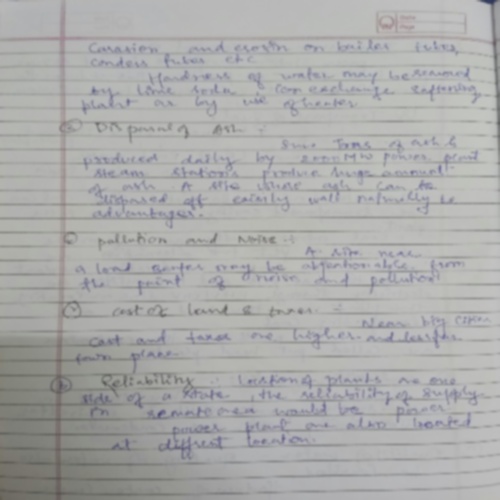 Corrosion and erosin on boiler tubes,
conders tubes etc
Hardness of water may be reamoved
by lime soda, ion exchange softening
plant or by use of heater.
Disposal of Ash :-
Tons of ash is
produced daily by 2000MW power plant
steam stations produce huge amount
of ash. A site where ash can be
disposed off easily will naturally be
advantages.
pollution and Noise :-
A site near
a load may be objectionable from
the point of noise and pollution
cost of land & taxes :-
Near
cost and taxes are higher and less for
town place
Reliability : location of plants on one
side of a state, the reliability of supply
in remote area would be power.
power plant are also located
at diffrent location.